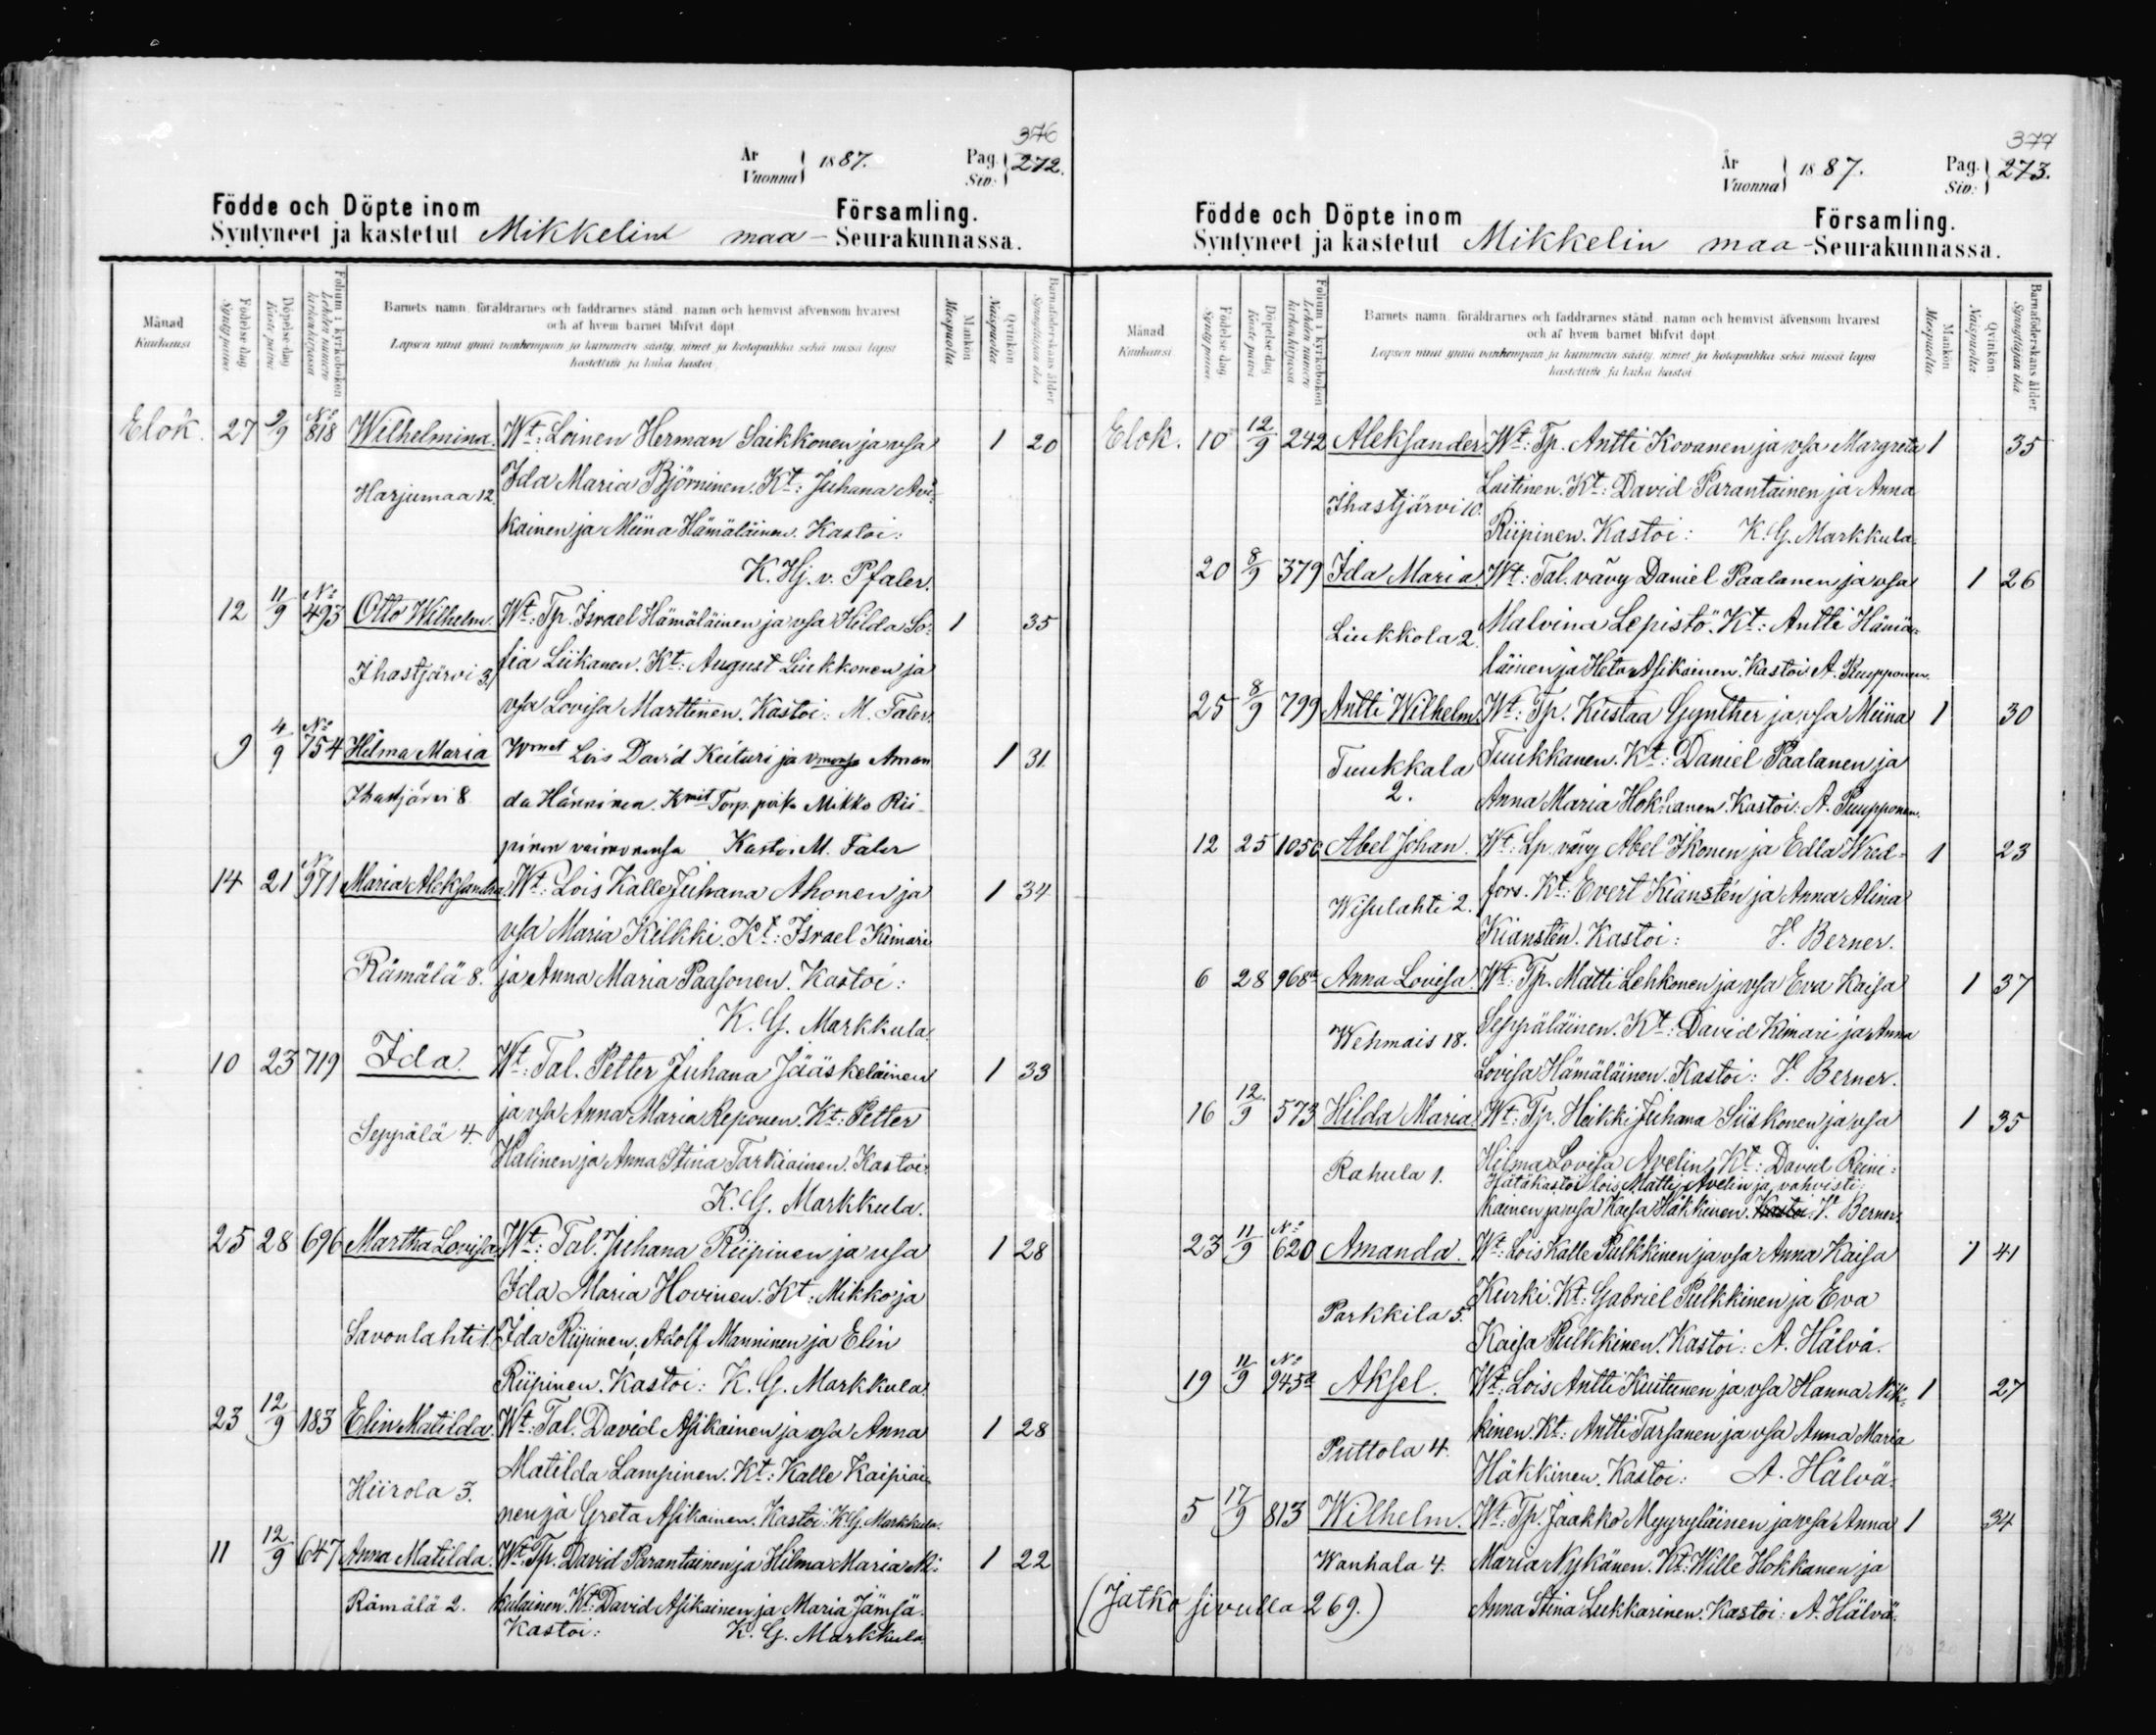 376
År
Vuonna
1887.
Pag.
Siv.
272.
Födde och Döpte inom Församling.
Syntyneet ja kastetut Mikkelin maa- Seurakunnassa.
Månad
Kuukausi
Födelse dag
Synty päivä
Döpelse dag
Kaste päivä
Folium i kyrkoboken
Lehden numero kirkonkirjassa
Barnets namn, föräldrarnes och faddrarnes stånd, namn och hemvist äfvensom hvarest
och af hvem barnet blifvit döpt.
Lapsen nimi ynnä vanhempain ja kummein sääty, nimet ja kotopaikka sekä missä lapsi
kastettiin ja kuka kastoi.
Mankön
Miespuolia
Qvinkön
Naispuolia
Barnaföderskans ålder
Synnyttäjän ikä
Elok. 27 2/9 No 818 Wilhelmina. Wt: Loinen Herman Saikkonen ja vsa 1 20
Harjumaa 12. Ida Maria Björninen. Kt: Juhana
kainen ja Miina Hämäläinen. Kastoi:
K. Hj. v. Pfaler.
12 11/9 No 493 Otto Wilhelm. Wt: Tp. Israel Hämäläinen ja vsa Hilda So- 1 35
Ihastjärvi 3. fia Liikanen. Kt: August Liukkonen ja
vsa Lovisa Marttinen. Kastoi: M. Faler.
9 4/9 No 754 Hilma Maria Wmat Lois David Keituri ja vmonsa Aman 1 31
Ihastjärvi 8 da Hänninen. Kmit Torp. poika Mikko Rii-
pinen vaimonensa Kastoi M. Faler
14 21 No 971 Maria Aleksandra. Wt: Lois Kalle Juhana Ahonen ja 1 34
vsa Maria Kilkki. Kt: Israel Kimari
Rämälä 8. ja Anna Maria Paasonen. Kastoi:
K. G. Markkula.
10 23 719 Ida. Wt: Tal. Petter Juhana Jääskeläinen 1 33
Seppälä 4. ja vsa Anna Maria Reponen. Kt: Petter
Halinen ja Anna Stina Tarkiainen. Kastoi:
K. G. Markkula.
25 28 696 Martha Lovisa. Wt: Tal. Juhana Riipinen ja vsa 1 28
Ida Maria Hovinen. Kt: Mikko ja
Savonlahti 1. Ida Riipinen, Adolf Manninen ja Elin
Riipinen. Kastoi: K. G. Markkula
23 12/9 183 Elin Matilda. Wt: Tal. David Asikainen ja vsa Anna 1 28
Hiirola 3. Matilda Lampinen. Kt: Kalle Kaipiai-
nen ja Greta Asikainen. Kastoi: K. G. Markkula.
11 12/9 647 Anna Matilda. Wt: Tp. David Parantainen ja Hilma Maria Ni- 1 22
Rämälä 2. kulainen. Kt: David Asikainen ja Maria Jämsä.
Kastoi: K. G. Markkula
377
År
Vuonna
1887.
Pag.
Siv.
273.
Födde och Döpte inom Församling.
Syntyneet ja kastetut Mikkelin maa- Seurakunnassa.
Månad
Kuukausi
Födelse dag
Synty päivä
Döpelse dag
Kaste päivä
Folium i kyrkoboken
Lehden numero kirkonkirjassa
Barnets namn, föräldrarnes och faddrarnes stånd, namn och hemvist äfvensom hvarest
och af hvem barnet blifvit döpt.
Lapsen nimi ynnä vanhempain ja kummein sääty, nimet ja kotopaikka sekä missä lapsi
kastettiin ja kuka kastoi
Mankön
Miespuolia
Qvinkön
Naispuolia
Barnaföderskans ålder
Synnyttäjän ikä
Elok. 10 12/9 242 Aleksander. Wt: Tp. Antti Kovanen ja vsa Margreta 1 35
Ihastjärvi 10. Laitinen. Kt: David Parantainen ja Anna
Riipinen. Kastoi: K. G. Markkula.
20 8/9 379 Ida Maria Wt: Tal. vävy Daniel Paalanen ja vsa 1 26
Liukkola 2. Malvina Lepistö. Kt: Antti Hämä-
läinen ja Heta Asikainen. Kastoi A. Puupponen.
25 8/9 799 Antti Wilhelm. Wt: Tp. Kustaa Gynther ja vsa Miina 1 30
Tuukkala Tuukkanen. Kt: Daniel Paalanen ja
2. Anna Maria Hokkanen. Kastoi: A. Puupponen.
12 25 1050 Abel Johan. Wt: Lp. vävy Abel Ikonen ja Edla Wred- 1 23
Wisulahti 2. fors. Kt: Evert Kiansten ja Anna Alina
Kiansten. Kastoi: V. Berner.
6 28 968a Anna Lovisa. Wt: Tp. Matti Lehkonen ja vsa Eva Kaisa 1 37
Wehmais 18. Seppäläinen. Kt: David Kimari ja Anna
Lovisa Hämäläinen. Kastoi: V. Berner.
16 12/9 573 Hilda Maria Wt: Tp. Heikki Juhana Siiskonen ja vsa 1 35
Rahula 1. Hilma Lovisa Avelin. Kt: David Reini-
Hätäkastoi lois Matti Avelin ja vahvisti:
kainen ja vsa Kaisa Häkkinen. Kastoi: V. Berner.
23 11/9 No 620 Amanda. Wt: Lois Kalle Pulkkinen ja vsa Anna Kaisa 1 41
Parkkila 5. Kurki. Kt: Gabriel Pulkkinen ja Eva
Kaisa Pulkkinen. Kastoi: A. Hälvä.
19 11/9 No 945a Aksel. Wt: Lois Antti Kuitunen ja vsa Hanna Nik- 1 27
Puttola 4. kinen. Kt: Antti Tarsanen ja vsa Anna Maria
Häkkinen. Kastoi: A. Hälvä.
5 17/9 813 Wilhelm. Wt: Tp. Jaakko Myyryläinen ja vsa Anna 1 34
Wanhala 4. Maria Nykänen. Kt: Wille Hokkanen ja
(Jatko sivulla 269.) Anna Stina Lukkarinen. Kastoi: A. Hälvä.